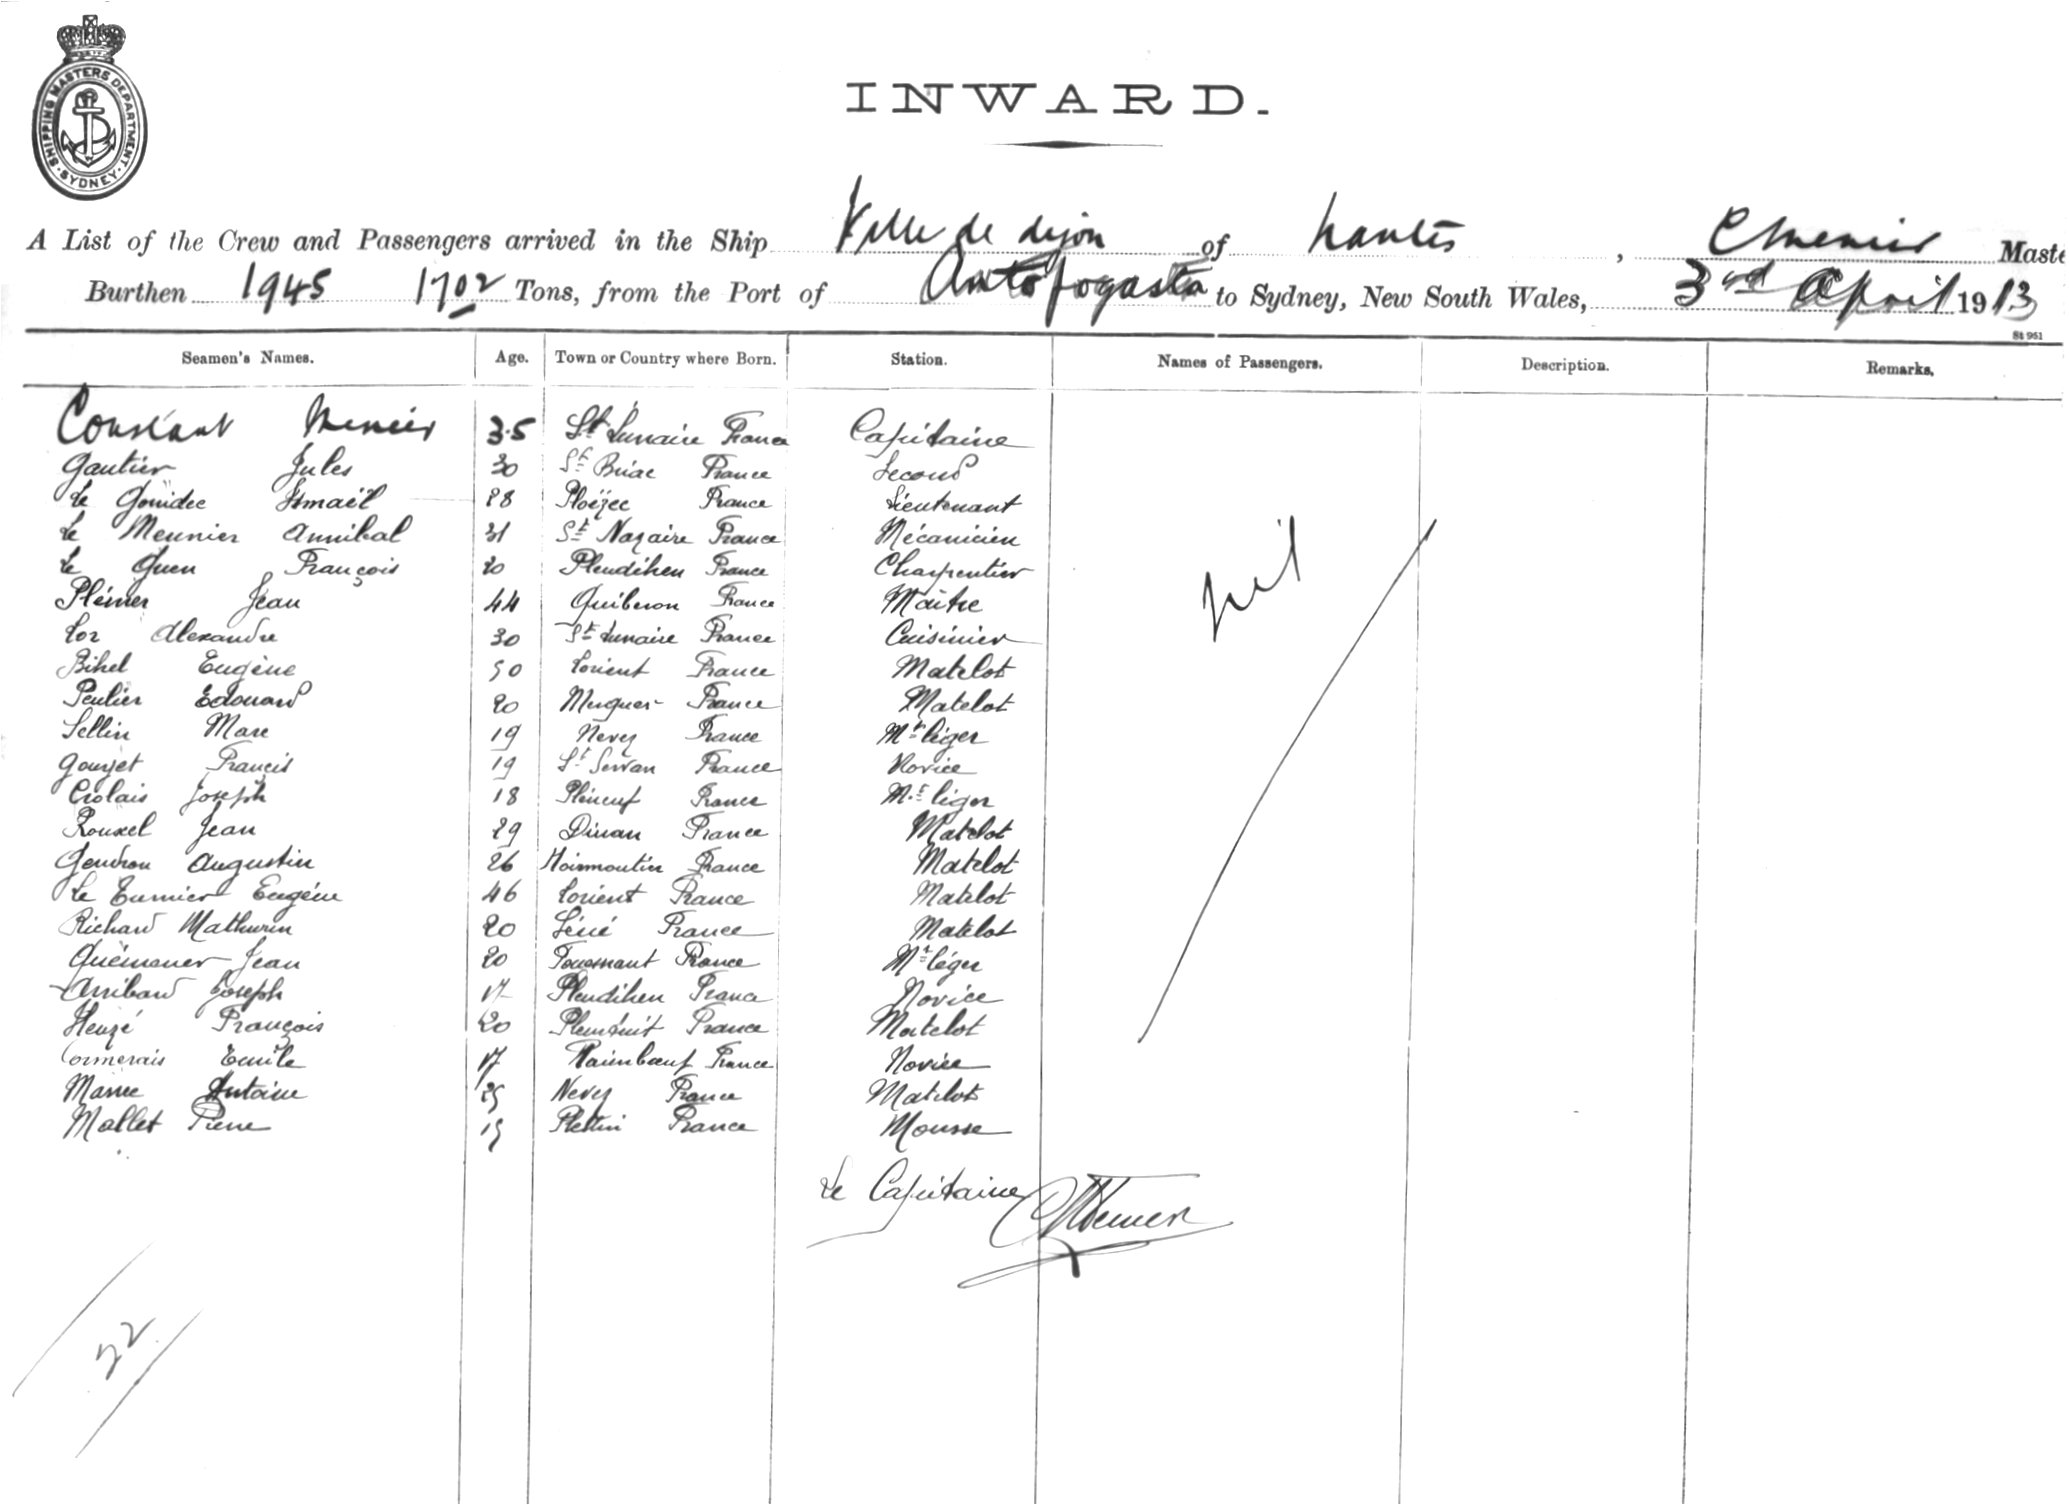 SHIPPING MASTERS DEPARTMENT SYDNEY
INWARD.
A List of the Crew and Passengers arrived in the Ship Ville de dijon of Nantes, C Menier Maste
Burthen 1945 1702 Tons, from the Port of Antofogasta to Sydney, New South Wales, 3rd April 1913
St 951
Seamen's Names. Age. Town or Country where Born. Station. Names of Passengers. Description. Remarks.
Constant Menier 35 St Lunaire France Capitaine
Gautier Jules 30 St Briac France Second
Le Gouidec Ismaël 28 Ploëzec France Lieutenant
Le Meunier Annibal 31 St Nazaire France Mécanicien
Le Guen François 20 Pleudihen France Charpentier
Jean 44 Quiberon France Maître
Lor Alexandre 30 St Lunaire France Cuisinier
Bihel Eugène 50 Lorient France Matelot
Peulier Edouard 20 Mesquer France Matelot
Sellin Marc 19 Nevez France Mt léger
Gouyet Francis 19 St Servan France Novice
Crolais Joseph 18 Pléneuf France Mt léger
Rouxel Jean 29 Dinan France Matelot
Gendron Augustin 26 Noirmoutier France Matelot
Le Eugène 46 Lorient France Matelot
Richard Mathurin 20 Séné France Matelot
Quémener Jean 20 Fouesnant France Mt léger
Joseph 17 Pleudihen France Novice
Heuzé François 20 Pleurtuit France Matelot
Cormerais Emile 17 Paimboeuf France Novice
Marrec Antoine 25 Nevez France Matelot
Mallet Pierre 15 Plestin France Mousse
nil
Le Capitaine CMenier
22